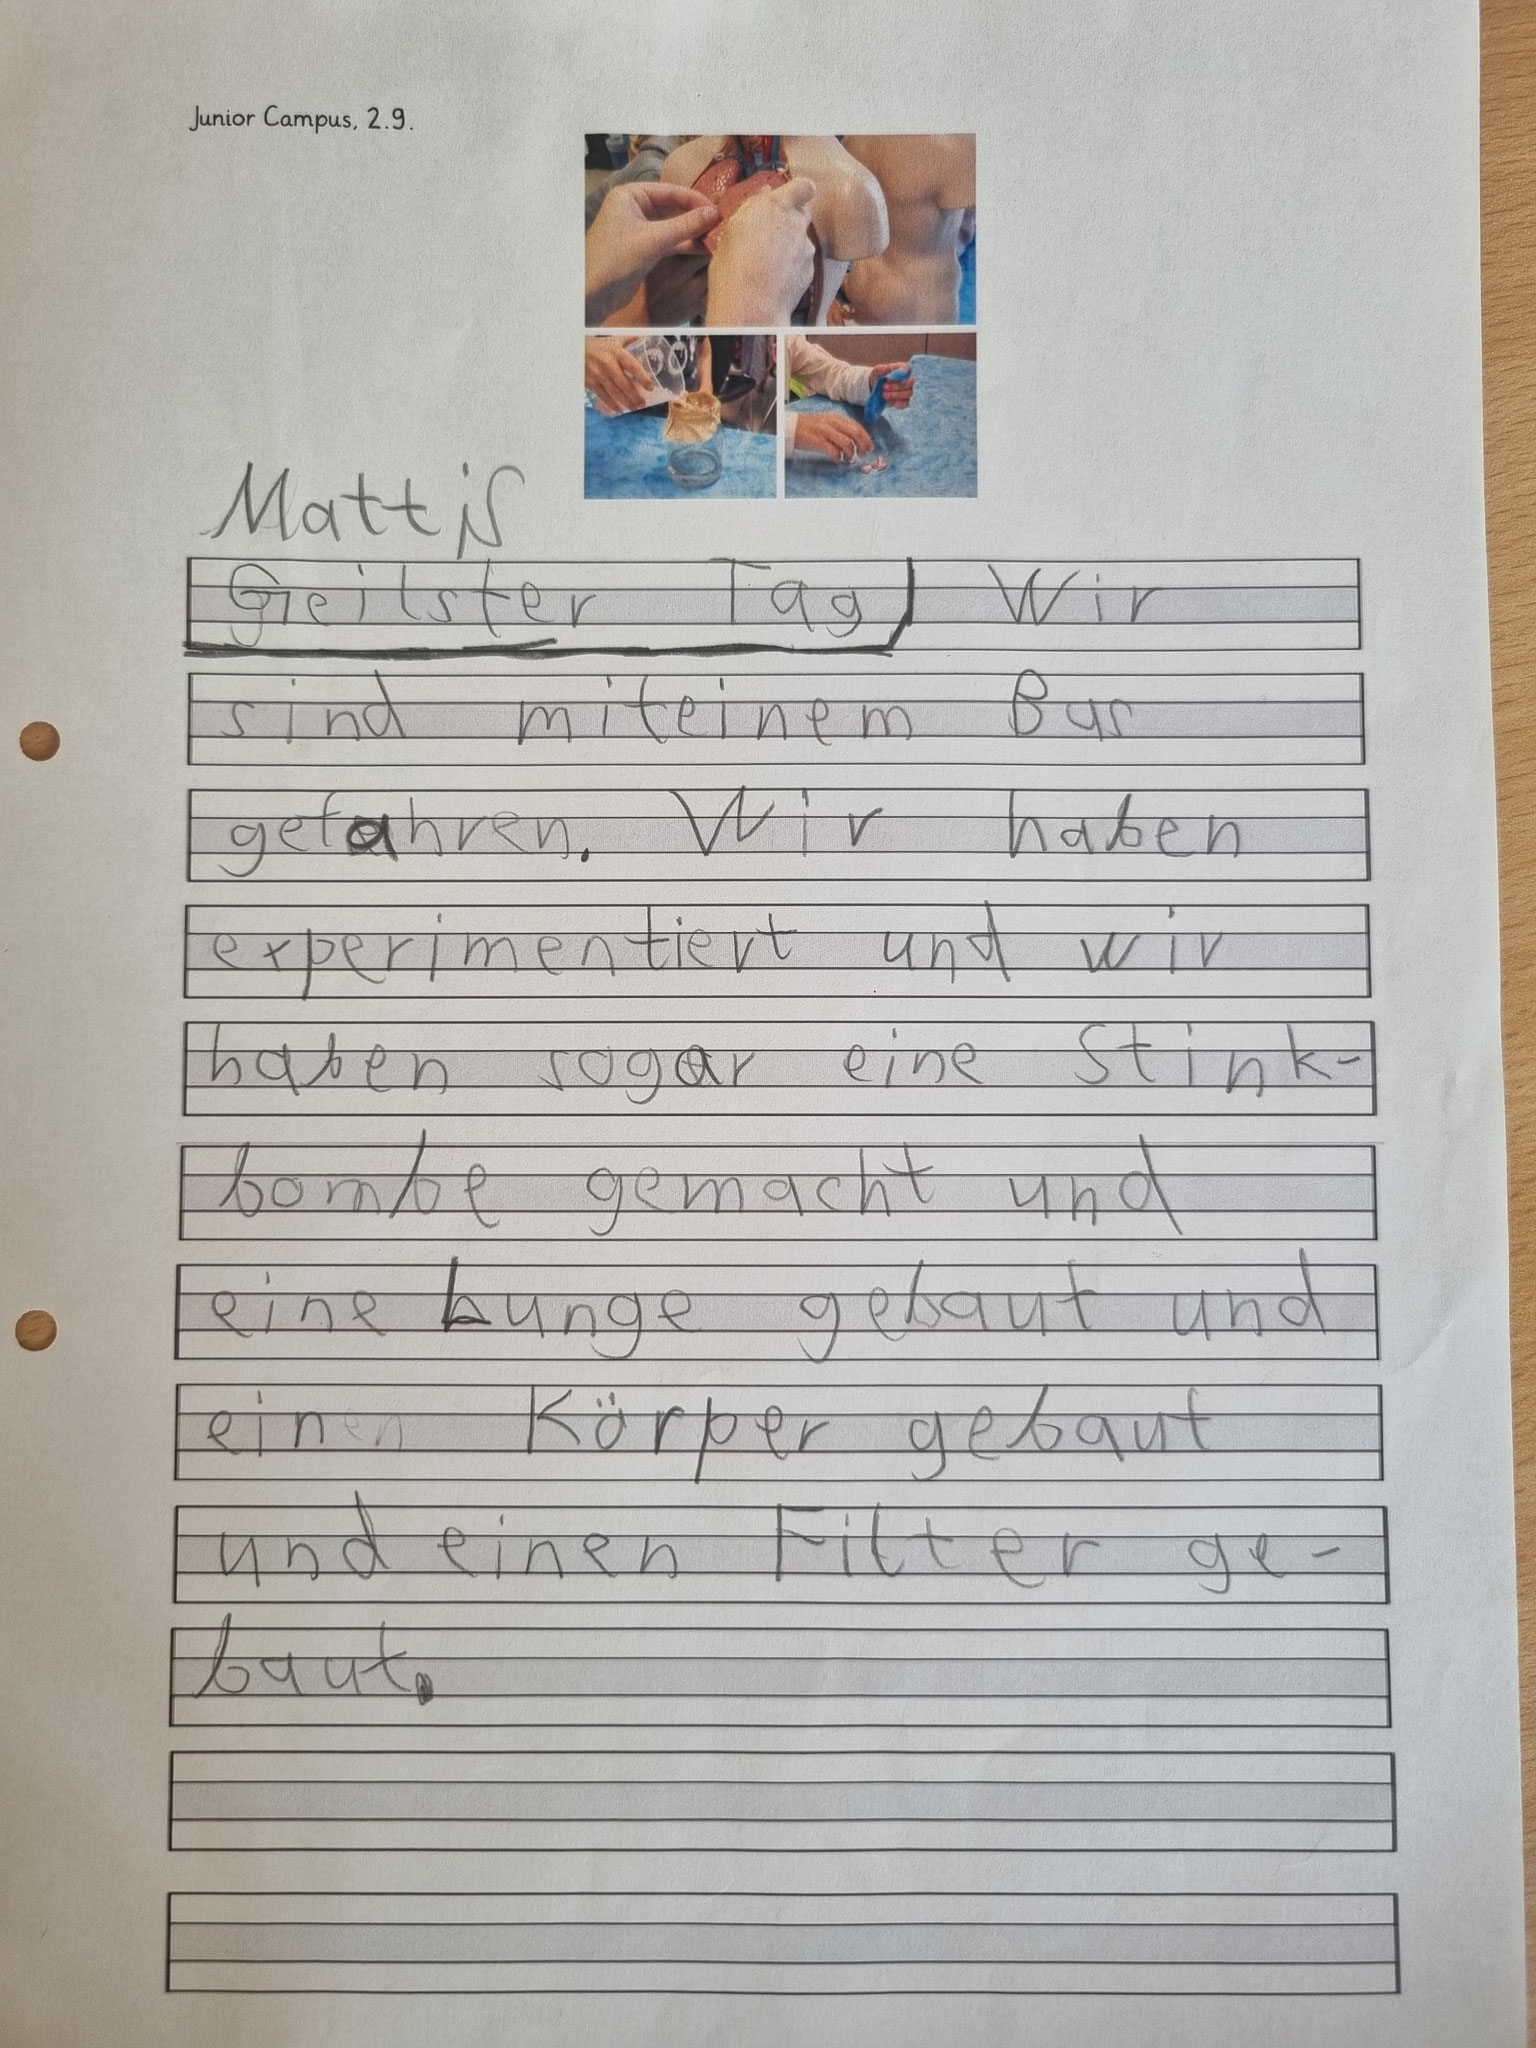 Junior Campus, 2.9.
Mattis
Geilster Tag Wir
sind miteinem Bus
gefahren. Wir haben
experimentiert und wir
haben sogar eine Stink-
bombe gemacht und
eine Lunge gebaut und
einen Körper gebaut
und einen Filter ge-
baut.